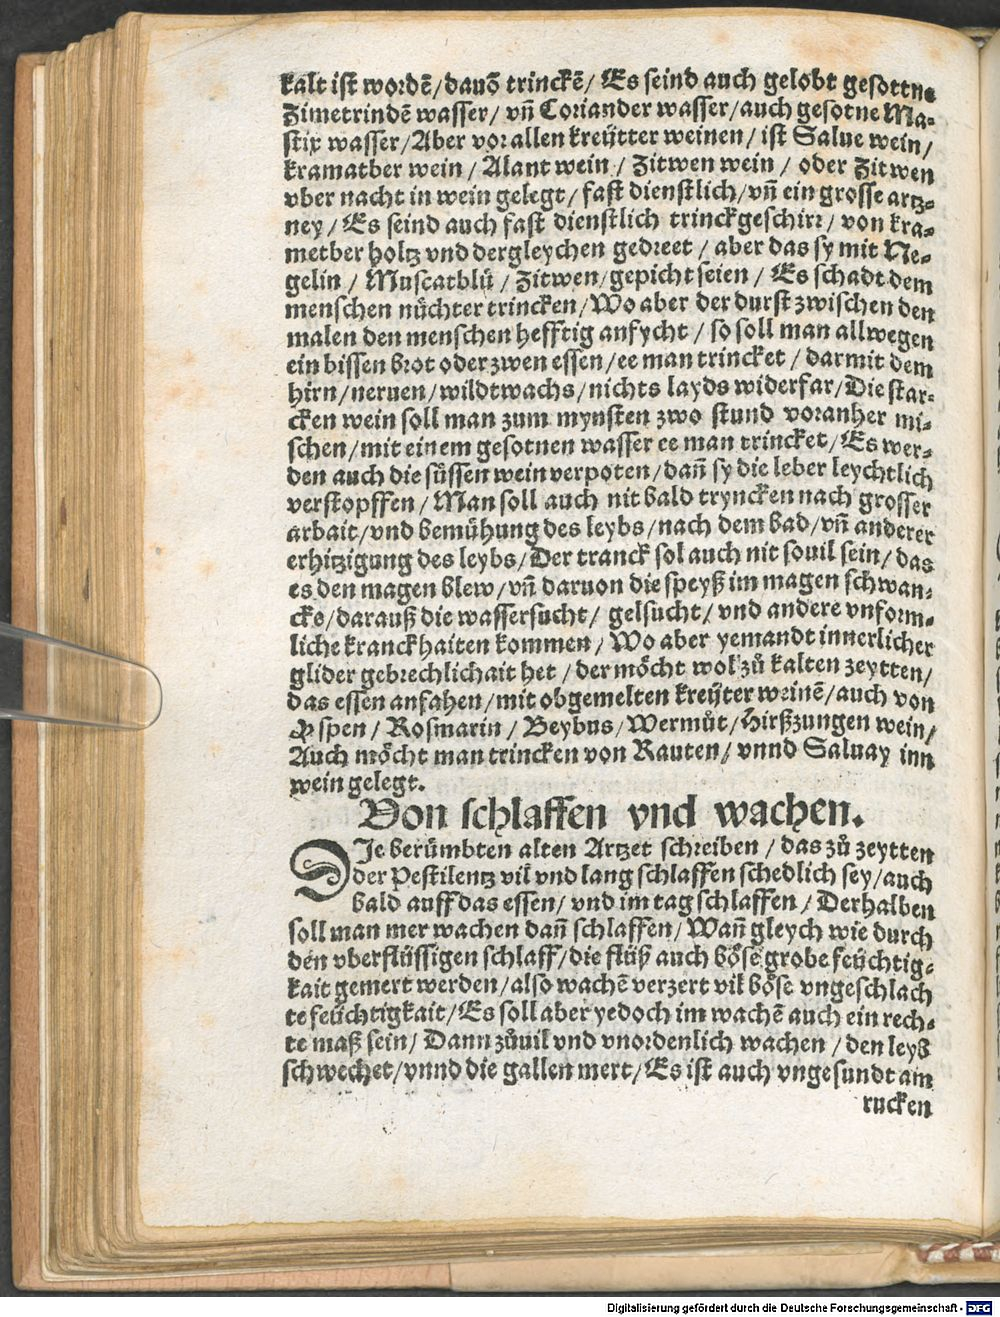 kalt ist wordē/dauō trinckē/ Es seind auch gelobt gesottne
Zimetrindē wasser/ vñ Coriander wasser/auch gesotne Ma-
stix wasser/Aber vor allen kreütter weinen/ ist Salue wein/
kramatber wein / Alant wein / Zitwen wein / oder Zitwen
vber nacht in wein gelegt/ fast dienstlich/vñ ein grosse artz-
ney / Es seind auch fast dienstlich trinckgeschirr/ von kra-
metber holtz vnd dergleychen gedreet / aber das sy mit Ne-
gelin / Muscatblů / Zitwen/gepicht seien / Es schadt dem
menschen nůchter trincken/Wo aber der durst zwischen den
malen den menschen hefftig anfycht / so soll man allwegen
ein bissen brot oder zwen essen/ee man trincket / darmit dem
hirn/neruen/wildtwachs/nichts layds widerfar/Die star-
cken wein soll man zum mynsten zwo stund voranher mi-
schen/mit einem gesotnen wasser ee man trincket/Es wer-
den auch die süssen wein verpoten/dañ sy die leber leychtlich
verstopffen / Man soll auch nit bald tryncken nach grosser
arbait/vnd bemühung des leybs/nach dem bad/vñ anderer
erhitzigung des leybs/Der tranck sol auch nit souil sein/ das
es den magen blew/vñ daruon die speyß im magen schwan-
cke/darauß die wassersucht/ gelsucht/ vnd andere vnform-
liche kranckhaiten kommen/ Wo aber yemandt innerlicher
glider gebrechlichait het / der möcht wol zů kalten zeytten/
das essen anfahen/mit obgemelten kreüter weinē/auch von
Yspen / Rosmarin / Beybus/Wermůt/Hirßzungen wein/
Auch möcht man trincken von Rauten/ vnnd Saluay inn
wein gelegt.
Von schlaffen vnd wachen.
DJe berümbten alten Artzet schreiben / das zů zeytten
der Pestilentz vil vnd lang schlaffen schedlich sey/auch
bald auff das essen/ vnd im tag schlaffen/ Derhalben
soll man mer wachen dañ schlaffen/Wañ gleych wie durch
den vberflüssigen schlaff/die flüß auch böse grobe feüchtig-
kait gemert werden/also wachē verzert vil böse vngeschlach
te feüchtigkait/Es soll aber yedoch im wachē auch ein rech-
te maß sein/ Dann zůuil vnd vnordenlich wachen / den leyb
schwechet/vnnd die gallen mert/Es ist auch vngesundt am
rucken
Digitalisierung gefördert durch die Deutsche Forschungsgemeinschaft - DFG